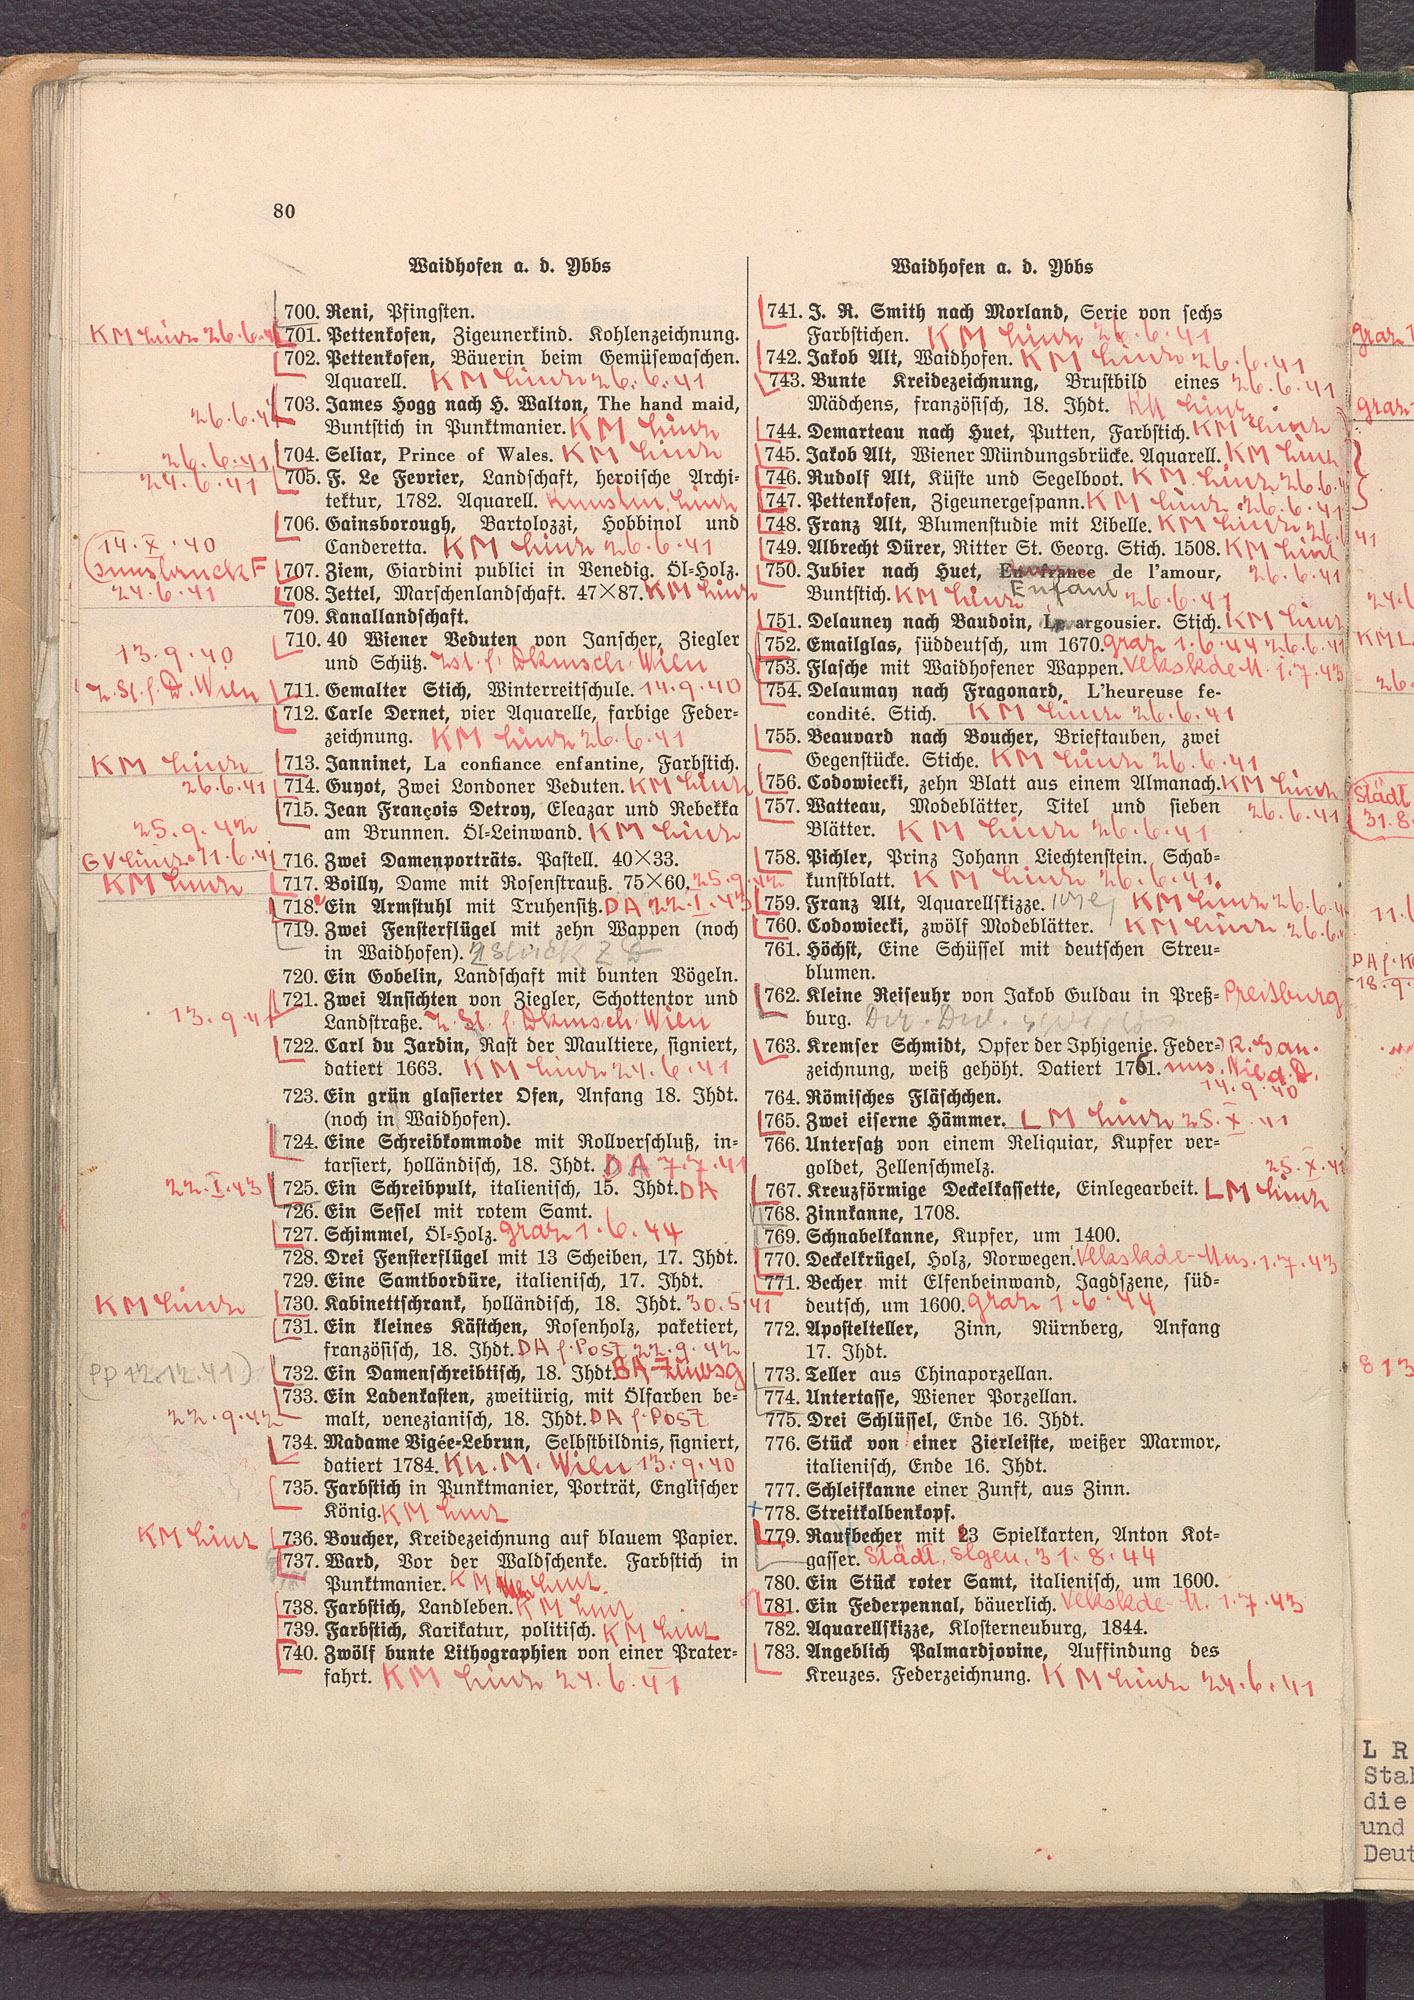 80
Waidhofen a. d. Ybbs
700. Reni, Pfingsten.
KM Linz 26.6.41
701. Pettenkofen, Zigeunerkind. Kohlenzeichnung.
702. Pettenkofen, Bäuerin beim Gemüsewaschen.
Aquarell. KM Linz 26.6.41
26.6.41
703. James Hogg nach H. Walton, The hand maid,
Buntstich in Punktmanier. KM Linz
26.6.41
704. Seliar, Prince of Wales. KM Linz
24.6.41
705. F. Le Fevrier, Landschaft, heroische Archi-
tektur, 1782. Aquarell. Linz
706. Gainsborough, Bartolozzi, Hobbinol und
Canderetta. KM Linz 26.6.41
14.X.40
Innsbruck F
707. Ziem, Giardini publici in Venedig. Öl-Holz.
24.6.41
708. Jettel, Marschenlandschaft. 47×87. KM Linz
709. Kanallandschaft.
710. 40 Wiener Veduten von Janscher, Ziegler
13.9.40
und Schütz. Zst. f. Dkmsch. Wien
Z. St. f. D. Wien
711. Gemalter Stich, Winterreitschule. 14.9.40
712. Carle Dernet, vier Aquarelle, farbige Feder-
zeichnung. KM Linz 26.6.41
KM Linz
713. Janninet, La confiance enfantine, Farbstich.
26.6.41
714. Guyot, Zwei Londoner Veduten. KM Linz
715. Jean François Detroy, Eleazar und Rebekka
25.9.42
am Brunnen. Öl-Leinwand. KM Linz
GV Linz 11.6.41
716. Zwei Damenporträts. Pastell. 40×33.
KM Linz
717. Boilly, Dame mit Rosenstrauß. 75×60. 25.9.42
718. Ein Armstuhl mit Truhensitz. DA 22.I.43
719. Zwei Fensterflügel mit zehn Wappen (noch
in Waidhofen).
720. Ein Gobelin, Landschaft mit bunten Vögeln.
721. Zwei Ansichten von Ziegler, Schottentor und
13.9.41
Landstraße. Z. St. f. Dkmsch. Wien
722. Carl du Jardin, Rast der Maultiere, signiert,
datiert 1663. KM Linz 24.6.41
723. Ein grün glasierter Ofen, Anfang 18. Jhdt.
(noch in Waidhofen).
724. Eine Schreibkommode mit Rollverschluß, in-
tarsiert, holländisch, 18. Jhdt. DA 7.7.41
22.I.43
725. Ein Schreibpult, italienisch, 15. Jhdt. DA
726. Ein Sessel mit rotem Samt.
727. Schimmel, Öl-Holz. Graz 1.6.44
728. Drei Fensterflügel mit 13 Scheiben, 17. Jhdt.
729. Eine Samtbordüre, italienisch, 17. Jhdt.
KM Linz
730. Kabinettschrank, holländisch, 18. Jhdt. 30.5.41
731. Ein kleines Kästchen, Rosenholz, paketiert,
französisch, 18. Jhdt. DA f. Post 22.9.42
(PP 12.12.41)
732. Ein Damenschreibtisch, 18. Jhdt.
733. Ein Ladenkasten, zweitürig, mit Ölfarben be-
22.9.42
malt, venezianisch, 18. Jhdt. DA f. Post
734. Madame Vigée-Lebrun, Selbstbildnis, signiert,
datiert 1784. Kh. M. Wien 13.9.40
735. Farbstich in Punktmanier, Porträt, Englischer
König. KM Linz
KM Linz
736. Boucher, Kreidezeichnung auf blauem Papier.
737. Ward, Vor der Waldschenke. Farbstich in
Punktmanier. KM Linz
738. Farbstich, Landleben. KM Linz
739. Farbstich, Karikatur, politisch. KM Linz
740. Zwölf bunte Lithographien von einer Prater-
fahrt. KM Linz 24.6.41
Waidhofen a. d. Ybbs
741. J. R. Smith nach Morland, Serie von sechs
Farbstichen. KM Linz 26.6.41
742. Jakob Alt, Waidhofen. KM Linz 26.6.41
743. Bunte Kreidezeichnung, Brustbild eines 26.6.41
Mädchens, französisch, 18. Jhdt. KM Linz
744. Demarteau nach Huet, Putten, Farbstich. KM Linz
745. Jakob Alt, Wiener Mündungsbrücke. Aquarell. KM Linz
746. Rudolf Alt, Küste und Segelboot. KM Linz 26.6.41
747. Pettenkofen, Zigeunergespann. KM Linz 26.6.41
748. Franz Alt, Blumenstudie mit Libelle. KM Linz 26.6.41
749. Albrecht Dürer, Ritter St. Georg. Stich. 1508. KM Linz
750. Jubier nach Huet, En france de l'amour, 26.6.41
Enfant
Buntstich. KM Linz 26.6.41
751. Delauney nach Baudoin, Le argousier. Stich. KM Linz
752. Emailglas, süddeutsch, um 1670. Graz 1.6.44 26.6.41
753. Flasche mit Waidhofener Wappen. Volkskde-M. 1.7.43
754. Delaunay nach Fragonard, L'heureuse fe-
condité. Stich. KM Linz 26.6.41
755. Beauvard nach Boucher, Brieftauben, zwei
Gegenstücke. Stiche. KM Linz 26.6.41
756. Codowiecki, zehn Blatt aus einem Almanach. KM Linz
757. Watteau, Modeblätter, Titel und sieben 26.6.41
Blätter. KM Linz 26.6.41
758. Pichler, Prinz Johann Liechtenstein. Schab-
kunstblatt. KM Linz 26.6.41
759. Franz Alt, Aquarellskizze. KM Linz 26.6.41
760. Codowiecki, zwölf Modeblätter. KM Linz 26.6.41
761. Höchst, Eine Schüssel mit deutschen Streu-
blumen.
762. Kleine Reiseuhr von Jakob Guldau in Preß- Preßburg
burg.
763. Kremser Schmidt, Opfer der Iphigenie. Feder- R. Gau.
zeichnung, weiß gehöht. Datiert 1761. mus. Nied. D.
14.9.40
764. Römisches Fläschchen.
765. Zwei eiserne Hämmer. LM Linz 25.X.41
766. Untersatz von einem Reliquiar, Kupfer ver-
goldet, Zellenschmelz. 25.X.41
767. Kreuzförmige Deckelkassette, Einlegearbeit. LM Linz
768. Zinnkanne, 1708.
769. Schnabelkanne, Kupfer, um 1400.
770. Deckelkrügel, Holz, Norwegen. Volkskde-Mus. 1.7.43
771. Becher mit Elfenbeinwand, Jagdszene, süd-
deutsch, um 1600. Graz 1.6.44
772. Apostelteller, Zinn, Nürnberg, Anfang
17. Jhdt.
773. Teller aus Chinaporzellan.
774. Untertasse, Wiener Porzellan.
775. Drei Schlüssel, Ende 16. Jhdt.
776. Stück von einer Zierleiste, weißer Marmor,
italienisch, Ende 16. Jhdt.
777. Schleifkanne einer Zunft, aus Zinn.
778. Streitkolbenkopf.
779. Raufbecher mit 23 Spielkarten, Anton Kot-
gasser. Städt. Slgen. 31.8.44
780. Ein Stück roter Samt, italienisch, um 1600.
781. Ein Federpennal, bäuerlich. Volkskde-M. 1.7.43
782. Aquarellskizze, Klosterneuburg, 1844.
783. Angeblich Palmardjovine, Auffindung des
Kreuzes. Federzeichnung. KM Linz 24.6.41
Graz
Graz
Städt
31.8.
18.9.
813
L R
Stal
die
und
Deut